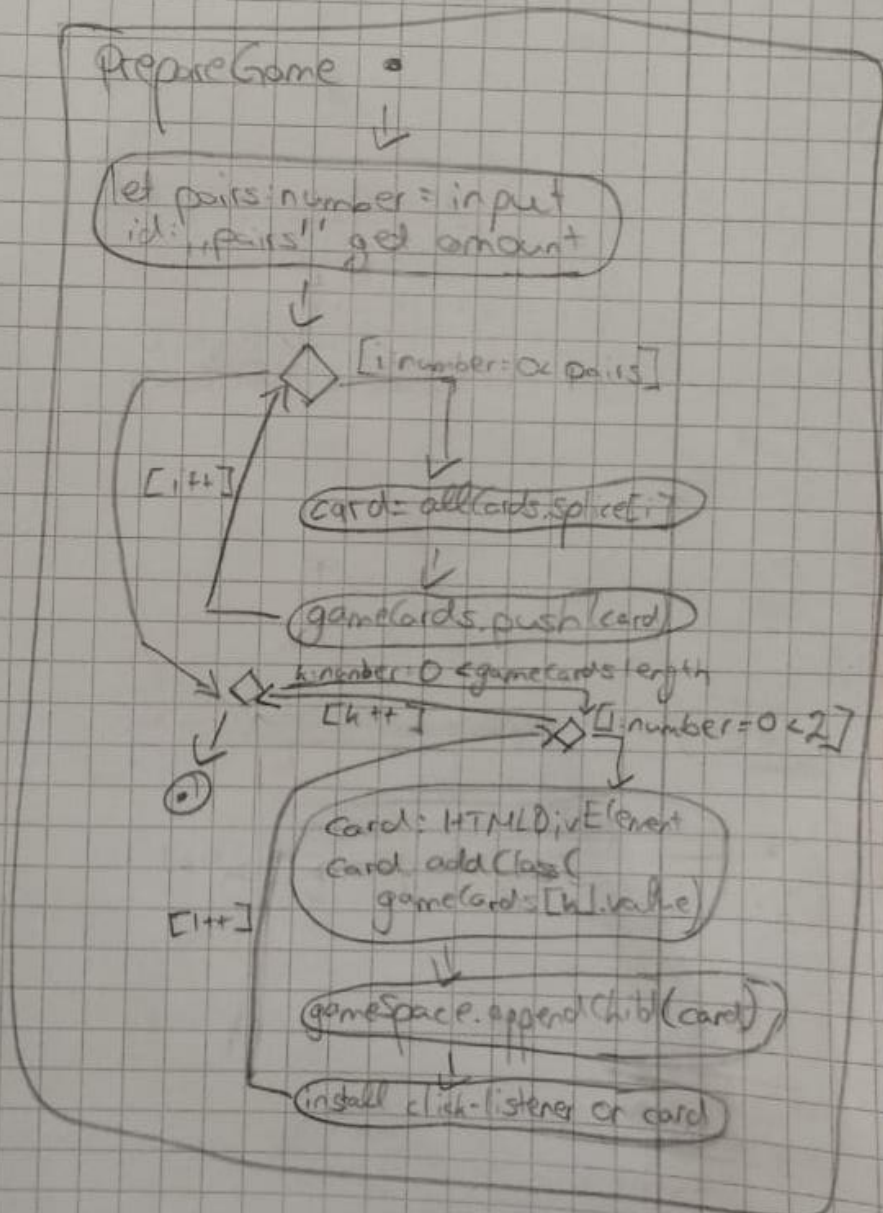 prepareGame
let pairs: number = input
id: „pairs" get amount
[i: number = 0 < pairs]
[i++]
card = allCards.splice[i]
gameCards.push(card)
h: number = 0 < gamecards length
[h++]
[l: number = 0 < 2]
card: HTMLDivElement
card addClass(
gameCards[h].value)
[l++]
gameSpace.appendChild(card)
install click-listener on card